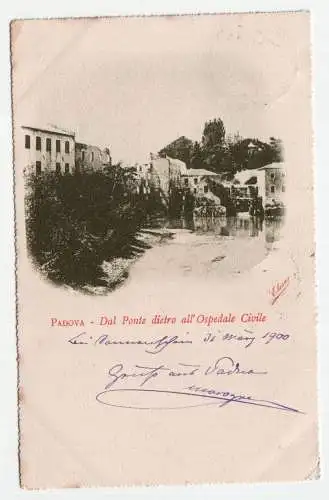 PADOVA - Dal Ponte dietro all'Ospedale Civile
bei Sonnenschein 31 März 1900
Gruß aus Padua